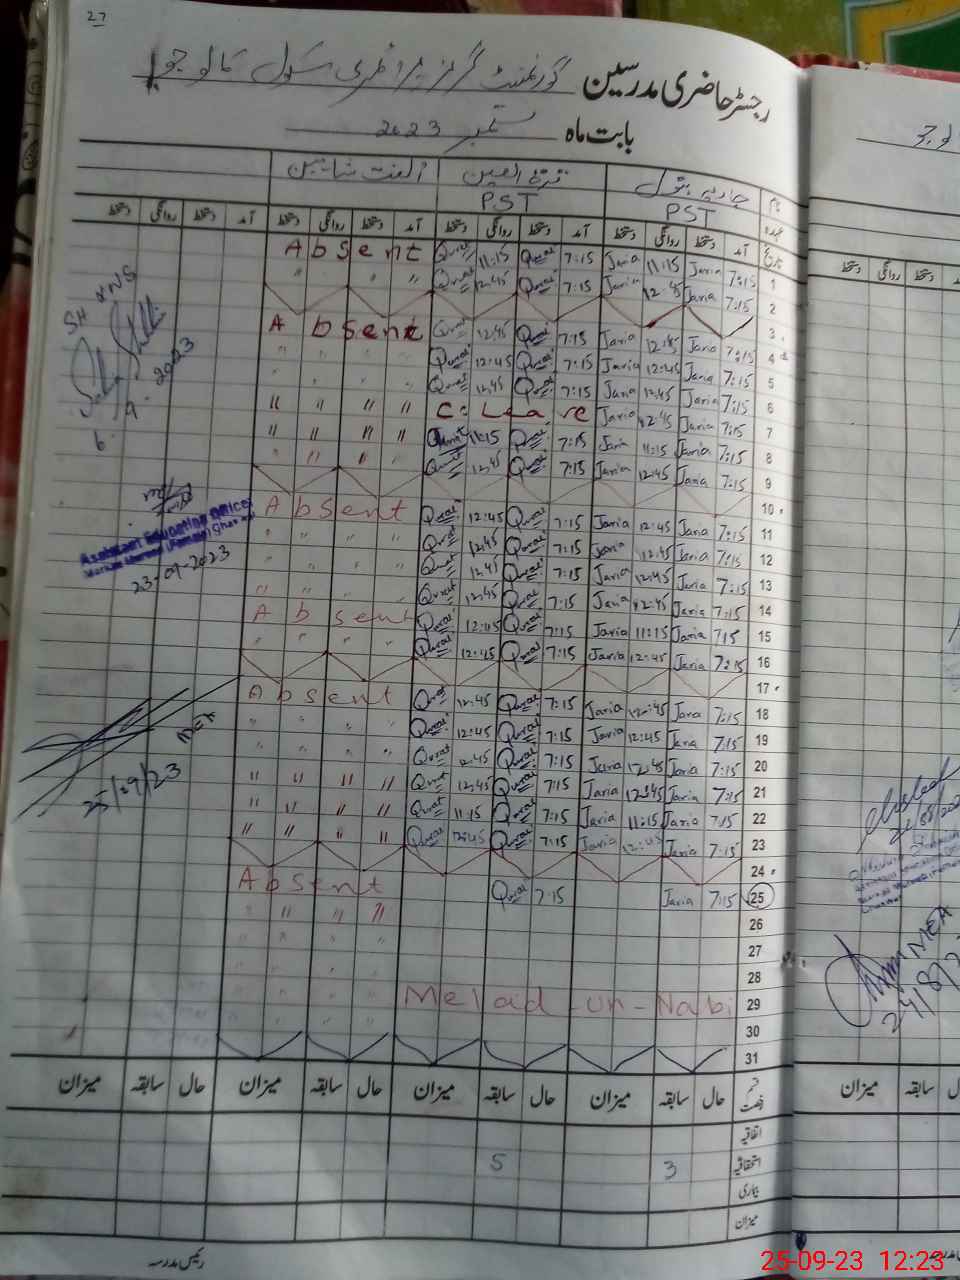 27
رجسٹر حاضری مدرسین گورنمنٹ گرلز پرائمری سکول
بابت ماہ ستمبر 2023
نام جاریہ بتول قرۃ العین
عہدہ PST PST
تاریخ آمد دستخط روانگی دستخط آمد دستخط روانگی دستخط آمد دستخط روانگی دستخط آمد دستخط روانگی دستخط
1 7:15 Jaria 11:15 Jaria 7:15 Qurat 11:15 Qurat Absent
2 7:15 Jaria 12:45 Jaria 7:15 Qurat 12:45 Qurat " "
3
4 7:15 Jaria 12:45 Jaria 7:15 Qurat 12:45 Qurat Absent
5 7:15 Jaria 12:45 Jaria 7:15 Qurat 12:45 Qurat " " " "
6 7:15 Jaria 12:45 Jaria 7:15 Qurat 12:45 Qurat " " " "
7 7:15 Jaria 12:45 Jaria C. Leave " " " "
8 7:15 Jaria 11:15 Jaria 7:15 Qurat 11:15 Qurat " " " "
9 7:15 Jaria 12:45 Jaria 7:15 Qurat 12:45 Qurat " " " "
10
11 7:15 Jaria 12:45 Jaria 7:15 Qurat 12:45 Qurat Absent
12 7:15 Jaria 12:45 Jaria 7:15 Qurat 12:45 Qurat " " " "
13 7:15 Jaria 12:45 Jaria 7:15 Qurat 12:45 Qurat " " " "
14 7:15 Jaria 12:45 Jaria 7:15 Qurat 12:45 Qurat " " " "
15 7:15 Jaria 11:15 Jaria 7:15 Qurat 12:45 Qurat Absent
16 7:15 Jaria 12:45 Jaria 7:15 Qurat 12:45 Qurat " " " "
17
18 7:15 Jaria 12:45 Jaria 7:15 Qurat 12:45 Qurat Absent
19 7:15 Jaria 12:45 Jaria 7:15 Qurat 12:45 Qurat " " " "
20 7:15 Jaria 12:45 Jaria 7:15 Qurat 12:45 Qurat " " " "
21 7:15 Jaria 12:45 Jaria 7:15 Qurat 12:45 Qurat " " " "
22 7:15 Jaria 11:15 Jaria 7:15 Qurat 11:15 Qurat " " " "
23 7:15 Jaria 12:45 Jaria 7:15 Qurat 12:45 Qurat " " " "
24
25 7:15 Jaria 7:15 Qurat Absent
26 " " " "
27 " " " "
28 " " " "
29 Melaad-un-Nabi " " " "
30 " " " "
31
قسم رخصت حال سابقہ میزان حال سابقہ میزان حال سابقہ میزان حال سابقہ میزان
اتفاقیہ
استحقاقیہ 3 5
بیماری
میزان
رئیس مدرسہ
2023
Assistant Education Officer
23-09-2023
MEA
25/09/23
دستخط روانگی دستخط
MEA
میزان سابقہ
25-09-23 12:23